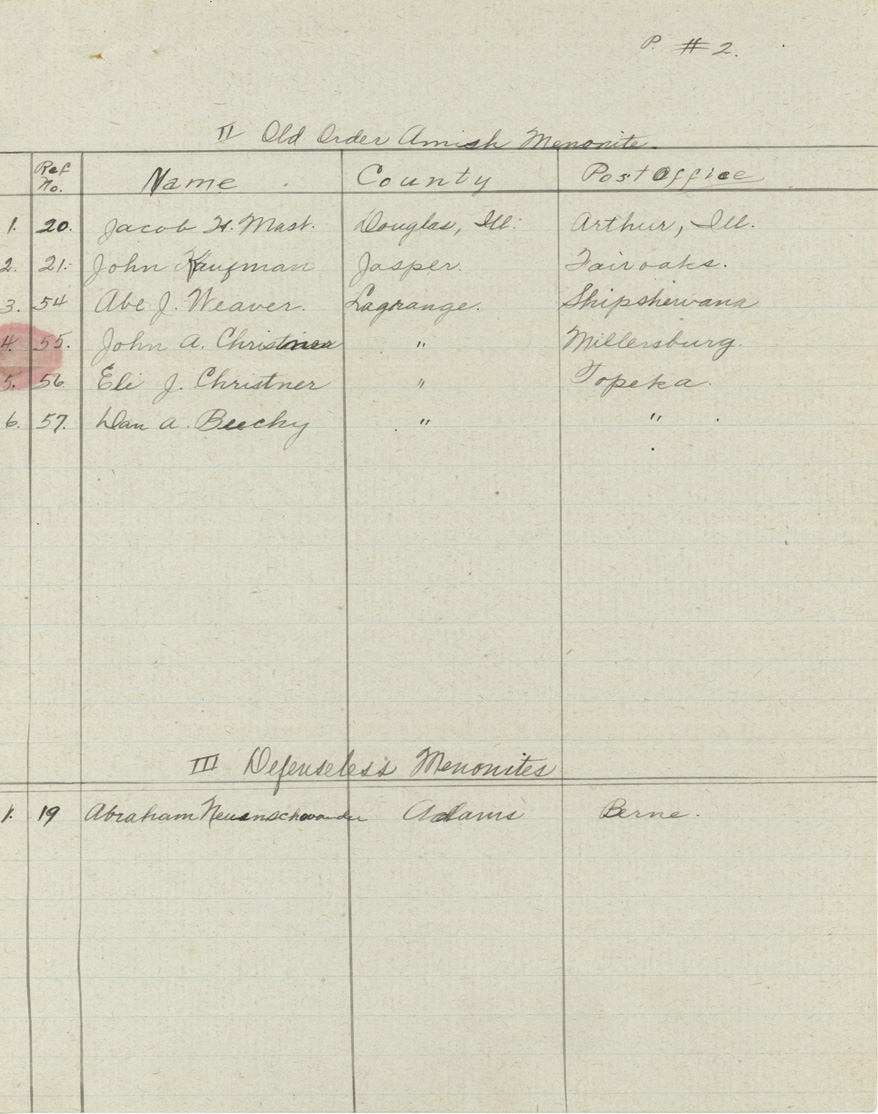 P. #2.
II Old Order Amish Menonite.
Ref No. Name County Post Office
1. 20. Jacob H. Mast. Douglas, Ill. Arthur, Ill.
2. 21. John Kaufman Jasper. Fairoaks.
3. 54 Abe J. Weaver. Lagrange. Shipshewana
4. 55. John A. Christner " Millersburg.
5. 56 Eli J. Christner " Topeka.
6. 57. Dan A. Beechy " "
III Defenseless Menonites
1. 19 Abraham Neuenschwander Adams Berne.